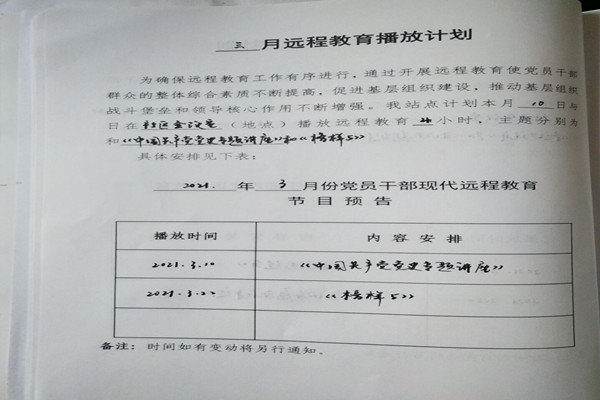 三 月远程教育播放计划
为确保远程教育工作有序进行，通过开展远程教育使党员干部
群众的整体综合素质不断提高，促进基层组织建设，推动基层组织
战斗堡垒和领导核心作用不断增强。我站点计划本月 10 日与
日在 社区会议室 （地点）播放远程教育 小时，主题分别为
和《中国共产党党史专题讲座》和《榜样5》
具体安排见下表：
2021. 年 3 月份党员干部现代远程教育
节目预告
播放时间 内容安排
2021.3.10 《中国共产党党史专题讲座》
2021.3.20 《榜样5》
备注：时间如有变动将另行通知。